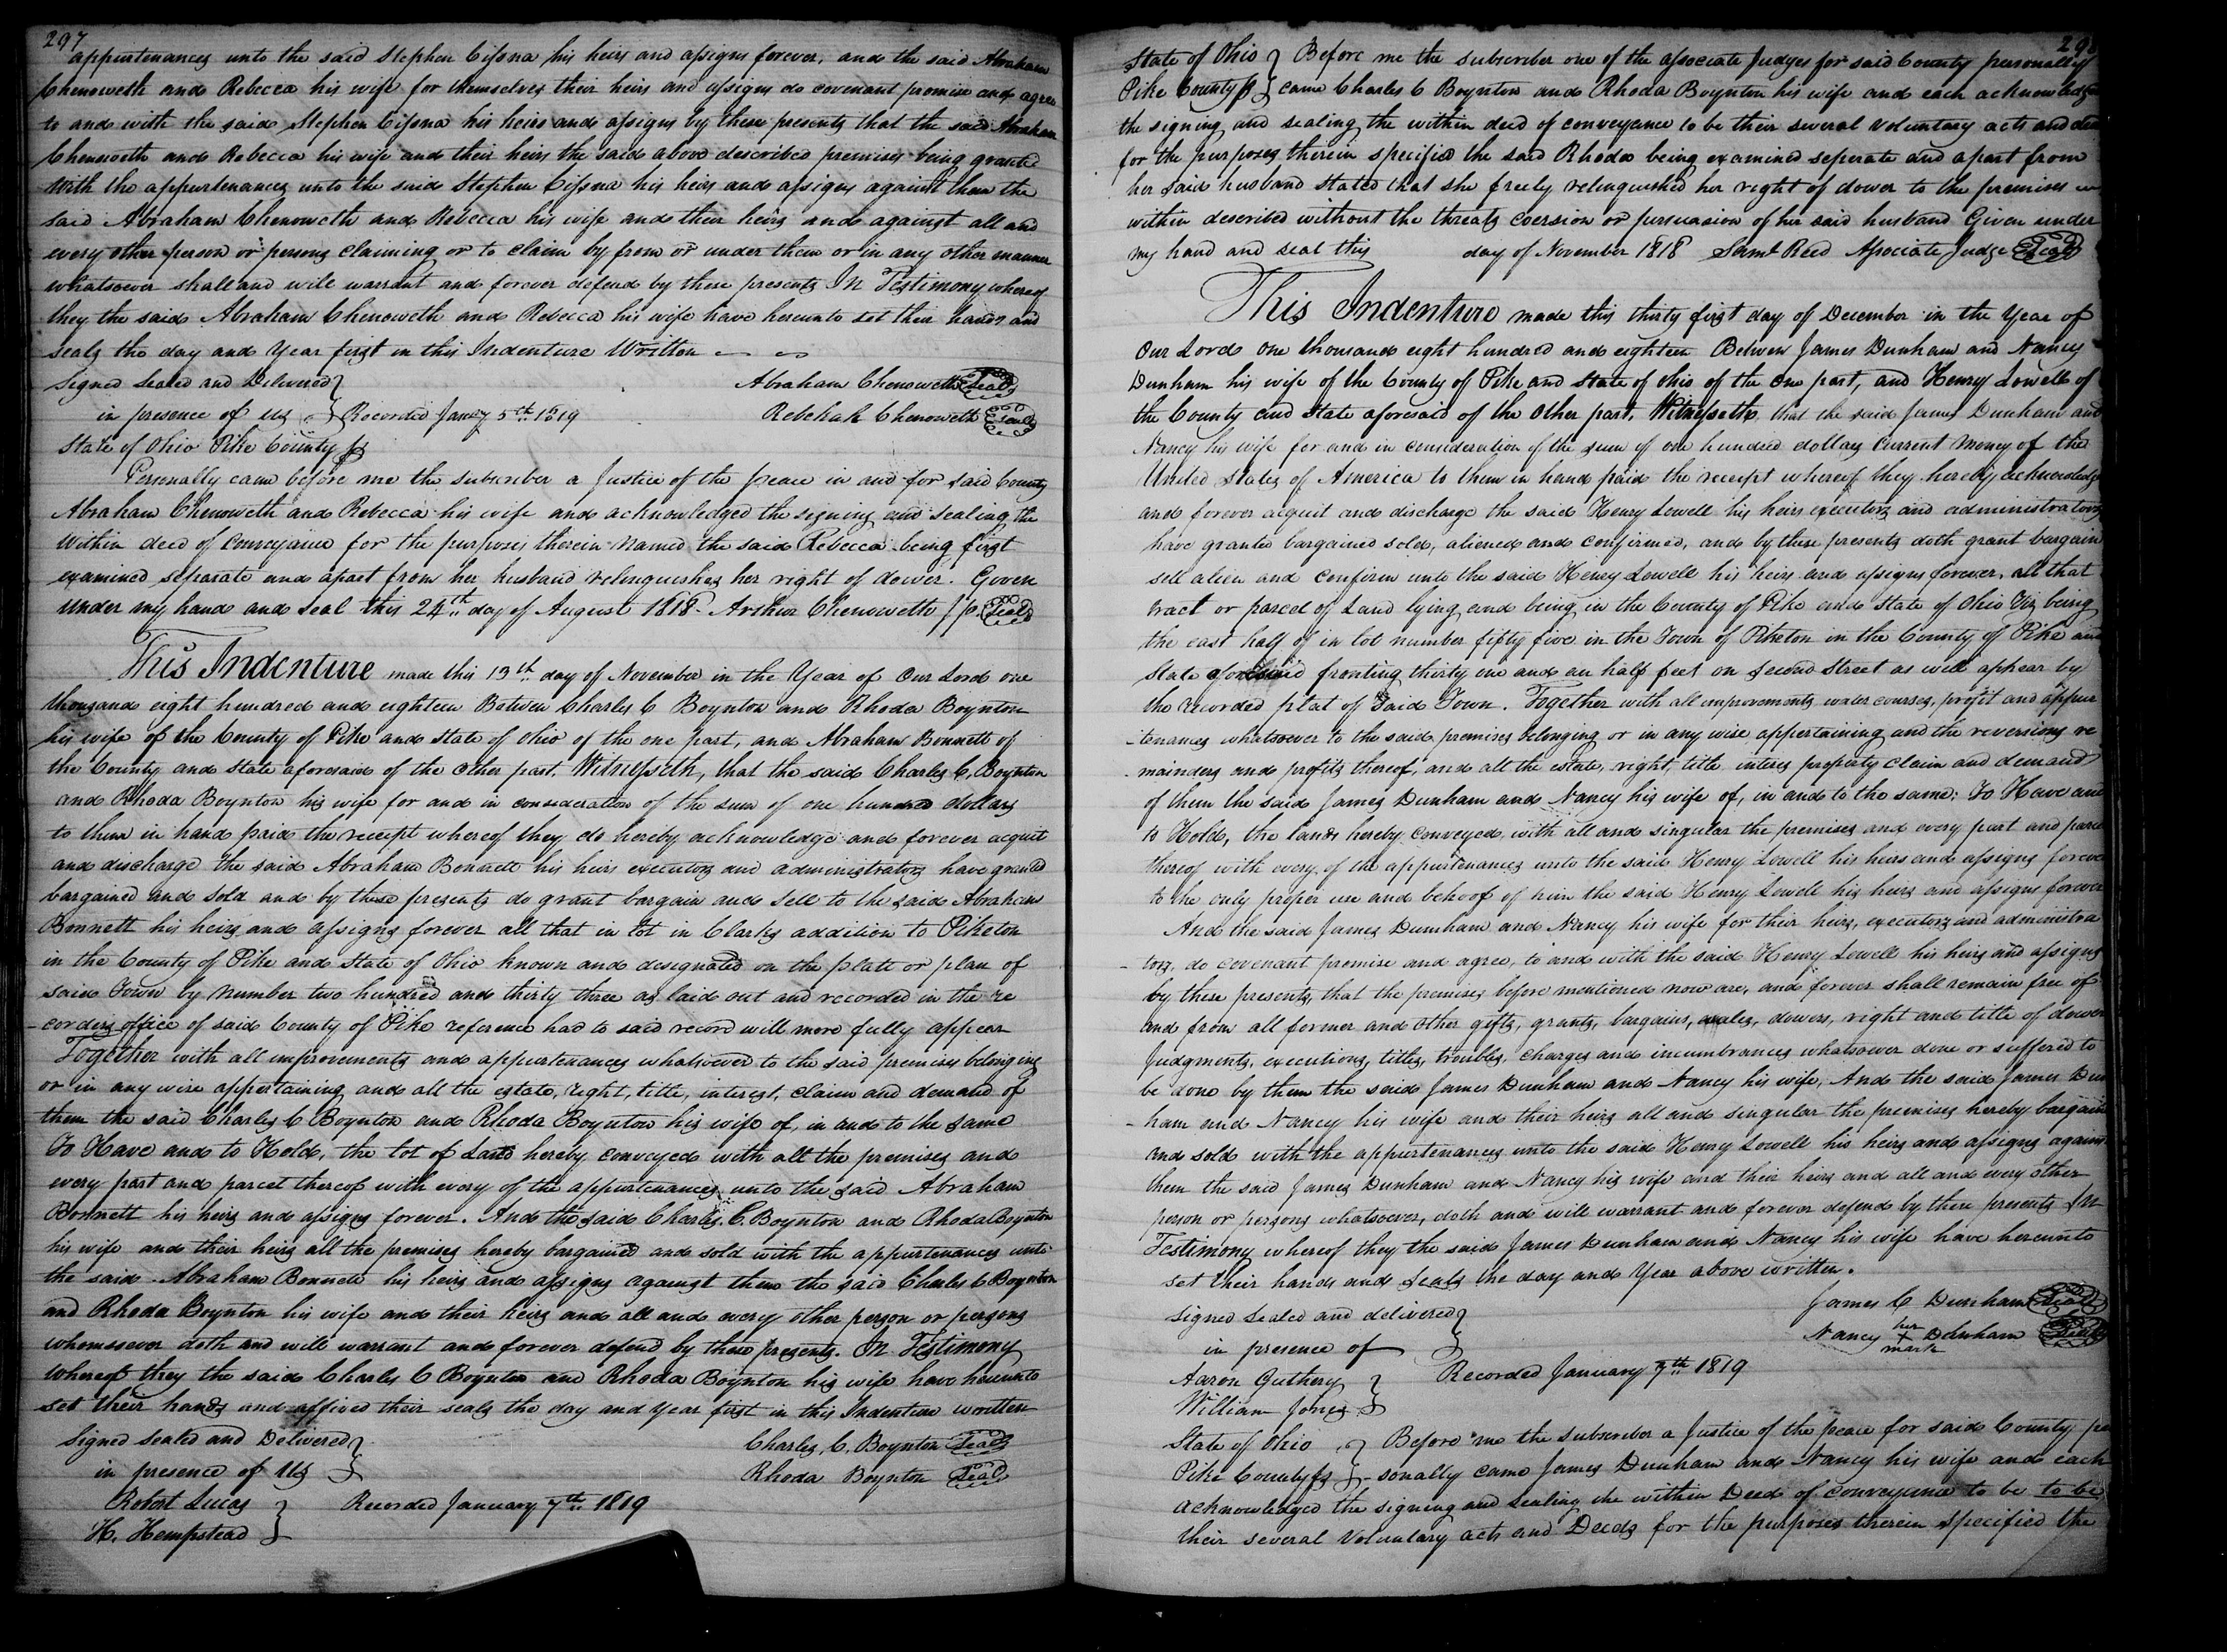 297
appurtenances unto the said Stephen Cissna his heirs and assigns forever, and the said Abraham
Chenoweth and Rebecca his wife for themselves their heirs and assigns do covenant promise and agree
to and with the said Stephen Cissna his heirs and assigns by these presents that the said Abraham
Chenoweth and Rebecca his wife and their heirs the said above described premises being granted
With the appurtenances unto the said Stephen Cissna his heirs and assigns against them the
said Abraham Chenoweth and Rebecca his wife and their heirs and against all and
every other person or persons claiming or to claim by from or under them or in any other manner
whatsoever shall and will warrant and forever defend by these presents In Testimony whereof
they the said Abraham Chenoweth and Rebecca his wife have hereunto set their hands and
seals the day and Year first in this Indenture Written
Signed Sealed and Delivered } Abraham Chenoweth Seal
in presence of us } Recorded Jany 5th 1819 Rebekah Chenoweth Seal
State of Ohio Pike County ss
Personally came before me the subscriber a Justice of the peace in and for said County
Abraham Chenoweth and Rebecca his wife and acknowledged the signing and sealing the
Within deed of Conveyance for the purposes therein Named the said Rebecca being first
examined separate and apart from her husband relinquishes her right of dower. Given
under my hand and seal this 24th day of August 1818 Arthur Chenoweth J.p. Seal
This Indenture made this 13th day of November in the Year of Our Lord one
thousand eight hundred and eighteen Between Charles C Boynton and Rhoda Boynton
his wife of the County of Pike and State of Ohio of the one part, and Abraham Bonnett of
the County and State aforesaid of the other part. Witnesseth, that the said Charles C. Boynton
and Rhoda Boynton his wife for and in consideration of the sum of one hundred dollars
to them in hand paid the receipt whereof they do hereby acknowledge and forever acquit
and discharge the said Abraham Bonnett his heirs executors and administrators have granted
bargained and sold and by these presents do grant bargain and Sell to the said Abraham
Bonnett his heirs and assigns forever all that in lot in Clarks addition to Piketon
in the County of Pike and State of Ohio known and designated on the plate or plan of
said Town by Number two hundred and thirty three as laid out and recorded in the re
-corders office of said County of Pike reference had to said record will more fully appear
Together with all improvements and appurtenances whatsoever to the said premises belonging
or in any wise appertaining and all the estate, right, title, interest, claim and demand of
them the said Charles C Boynton and Rhoda Boynton his wife of, in and to the same
To Have and to Hold, the lot of Land hereby conveyed with all the premises and
every part and parcel thereof with every of the appurtenances unto the said Abraham
Bonnett his heirs and assigns forever. And the said Charles C. Boynton and Rhoda Boynton
his wife and their heirs all the premises hereby bargained and sold with the appurtenances unto
the said Abraham Bonnett his heirs and assigns against them the said Charles C Boynton
and Rhoda Boynton his wife and their heirs and all and every other person or persons
whomsoever doth and will warrant and forever defend by these presents. In Testimony
whereof they the said Charles C Boynton and Rhoda Boynton his wife have hereunto
set their hands and affixed their seals the day and year first in this Indenture written
Signed Sealed and Delivered } Charles, C. Boynton Seal
in presence of us } Rhoda Boynton Seal
Robert Lucas } Recorded January 7th 1819
H. Hempstead }
298
State of Ohio } Before me the subscriber one of the associate Judges for said County personally
Pike County ss } came Charles C Boynton and Rhoda Boynton his wife and each acknowledged
the signing and sealing the within deed of conveyance to be their several voluntary acts and deeds
for the purposes therein specified the said Rhoda being examined seperate and apart from
her said husband stated that she freely relinquished her right of dower to the premises
within described without the threats coersion or persuasion of her said husband Given under
my hand and seal this day of November 1818 Saml Reed Associate Judge Seal
This Indenture made this thirty first day of December in the Year of
Our Lord one thousand eight hundred and eighteen Between James Dunham and Nancy
Dunham his wife of the County of Pike and State of Ohio of the one part, and Henry Lowell of
the County and State aforesaid of the other part. Witnesseth, that the said James Dunham and
Nancy his wife for and in consideration of the sum of one hundred dollars Current money of the
United States of America to them in hand paid the receipt whereof they hereby acknowledge
and forever acquit and discharge the said Henry Lowell his heirs executors and administrators
have granted bargained sold, aliened and confirmed, and by these presents doth grant bargain
sell alien and confirm unto the said Henry Lowell his heirs and assigns forever, all that
tract or parcel of Land lying and being in the County of Pike and State of Ohio Viz being
the east half of in lot number fifty five in the Town of Piketon in the County of Pike and
State aforesaid fronting thirty one and an half feet on Second Street as will appear by
the recorded plat of Said Town. Together with all improvements water courses, profit and appur
-tenances whatsoever to the said premises belonging or in any wise appertaining and the reversions re
-mainders and profits thereof, and all the estate, right, title interes property claim and demand
of them the said James Dunham and Nancy his wife of, in and to the same: To Have and
to Hold, the lands hereby Conveyed with all and singular the premises and every part and parcel
thereof with every of the appurtenances unto the said Henry Lowell his heirs and assigns forever
to the only proper use and behoof of him the said Henry Lowell his heirs and assigns forever
And the said James Dunham and Nancy his wife for their heirs, executors and administra
-tors, do covenant promise and agree, to and with the said Henry Lowell his heirs and assigns
by these presents, that the premises before mentioned now are, and forever shall remain free of
and from all former and other gifts, grants, bargains, sales, dowers, right and title of dower
Judgments, executions, titles, troubles, charges and incumbrances whatsoever done or suffered to
be done by them the said James Dunham and Nancy his wife, And the said James Dun
-ham and Nancy his wife and their heirs all and singular the premises hereby bargain
and sold with the appurtenances unto the said Henry Lowell his heirs and assigns against
them the said James Dunham and Nancy his wife and their heirs and all and every other
person or persons whatsoever, doth and will warrant and forever defend by these presents In
Testimony whereof they the said James Dunham and Nancy his wife have hereunto
set their hands and seals the day and Year above written.
Signed Sealed and delivered } James C Dunham Seal
in presence of } Nancy her X mark Dunham Seal
Aaron Guthery } Recorded January 7th 1819
William Jones }
State of Ohio } Before me the subscriber a Justice of the peace for said County per
Pike County ss } -sonally came James Dunham and Nancy his wife and each
acknowledged the signing and sealing the within Deed of conveyance to be to be
their several Voluntary acts and Deeds for the purposes therein specified the